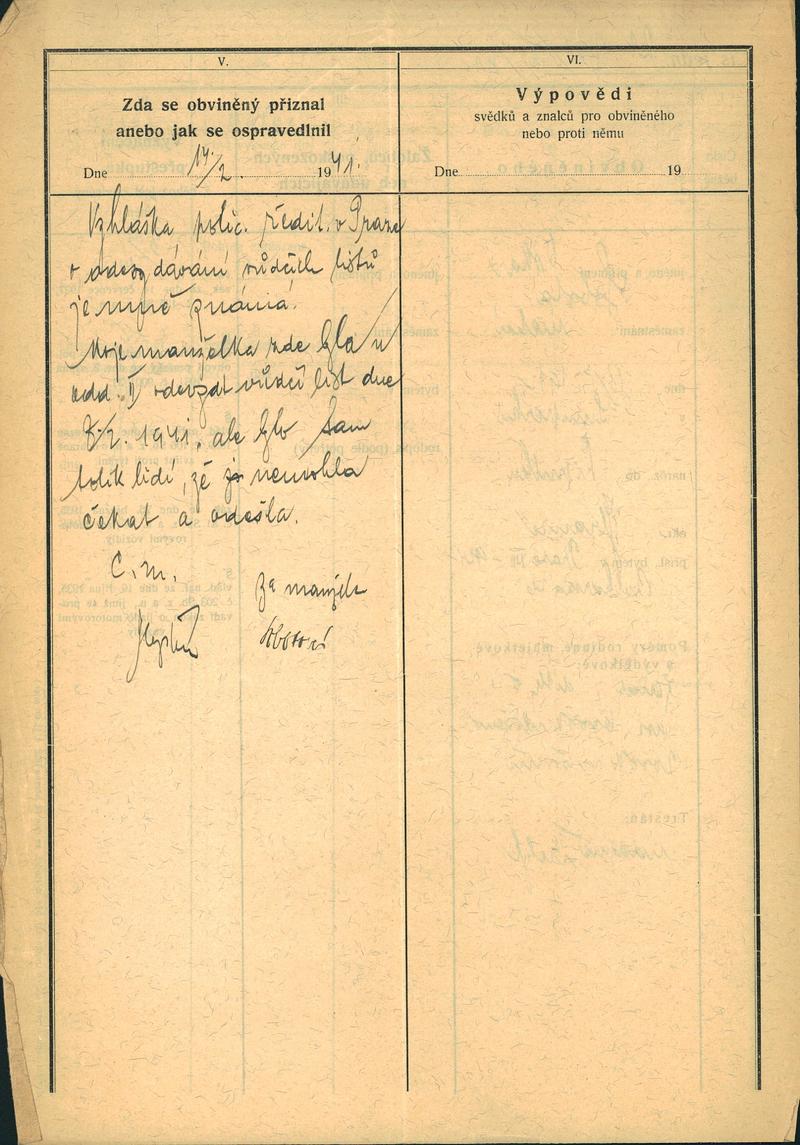 V.
Zda se obviněný přiznal
anebo jak se ospravedlnil
Dne 14/2. 1941.
Vyhláška polic. ředit. v Praze
o odevzdávání vůdčích listů
je mně známá.
Moje manželka zde byla u
odd. II odevzdat vůdčí list dne
8./2. 1941, ale bylo tam
tolik lidí, že již nemohla
čekat a odešla.
C. m.
Za manžela
VI.
Výpovědi
svědků a znalců pro obviněného
nebo proti němu
Dne 19